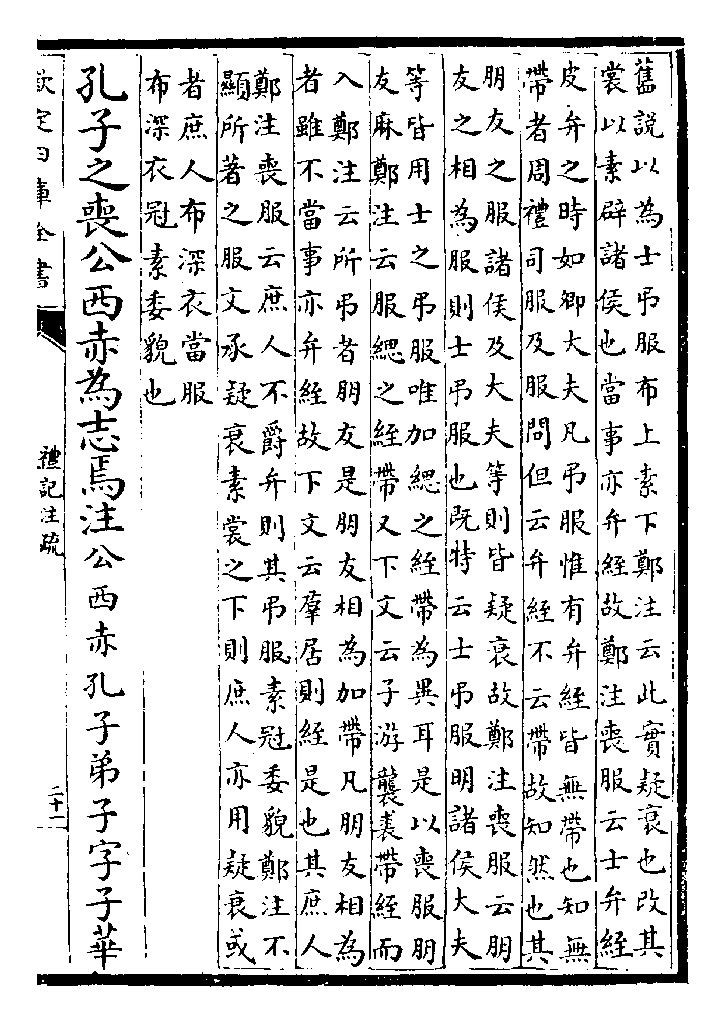 舊説以為士弔服布上素下鄭注云此實疑衰也改其
裳以素辟諸侯也當事亦弁絰故鄭注喪服云士弁絰
皮弁之時如卿大夫凡弔服惟有弁絰皆無帶也知無
帶者周禮司服及服問但云弁絰不云帶故知然也其
朋友之服諸侯及大夫等則皆疑衰故鄭注喪服云朋
友之相為服則士弔服也既特云士弔服明諸侯大夫
等皆用士之弔服唯加緦之絰帶為異耳是以喪服朋
友麻鄭注云服緦之絰帶又下文云子游襲裘帶絰而
入鄭注云所弔者朋友是朋友相為加帶凡朋友相為
者雖不當事亦弁絰故下文云羣居則絰是也其庶人
鄭注喪服云庶人不爵弁則其弔服素冠委貌鄭注不
顯所著之服文承疑衰素裳之下則庶人亦用疑衰或
者庶人布深衣當服
布深衣冠素委貌也
孔子之喪公西赤為志焉注公西赤孔子弟子字子華
欽定四庫全書
禮記注疏
二十二